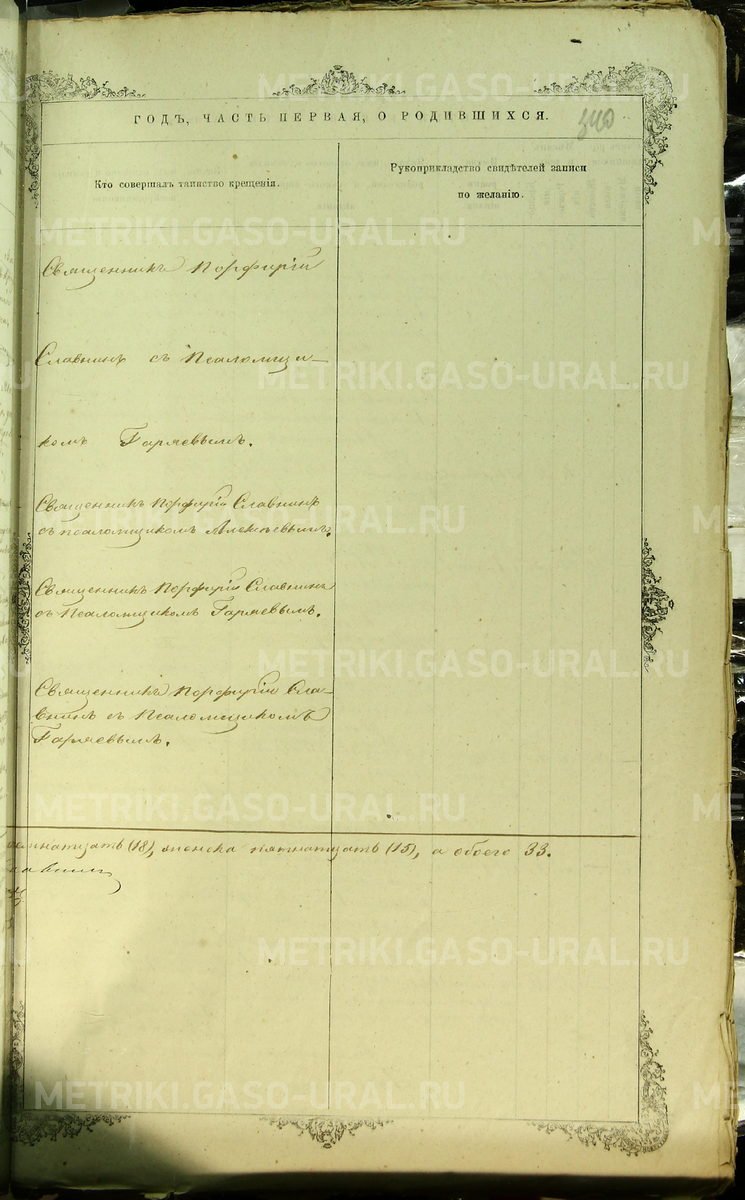 ГОДЪ, ЧАСТЬ ПЕРВАЯ, О РОДИВШИХСЯ.
340
Кто совершалъ таинство крещенія.
Рукоприкладство свидѣтелей записи
по желанію.
Священникъ Порфирій
Славнинъ съ Псаломщи–
комъ Гаряевымъ.
Священникъ Порфирій Славнинъ
съ псаломщикомъ Алексѣевымъ.
Священникъ Порфирій Славнинъ
съ Псаломщикомъ Гаряевымъ.
Священникъ Порфирій Сла–
внинъ съ Псаломщикомъ
Гаряевымъ.
(18), женска пятнатцать (15), а обоего 33.
METRIKI.GASO-URAL.RU